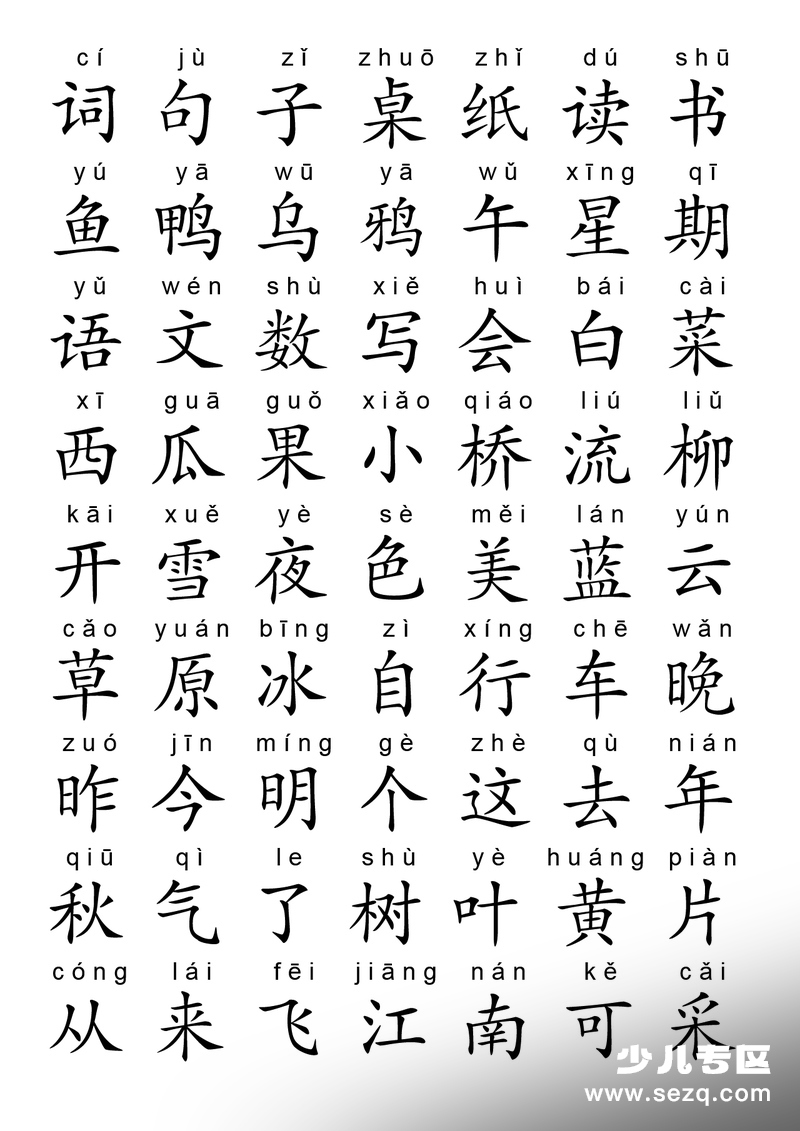 cí jù zǐ zhuō zhǐ dú shū
词 句 子 桌 纸 读 书
yú yā wū yā wǔ xīng qī
鱼 鸭 乌 鸦 午 星 期
yǔ wén shù xiě huì bái cài
语 文 数 写 会 白 菜
xī guā guǒ xiǎo qiáo liú liǔ
西 瓜 果 小 桥 流 柳
kāi xuě yè sè měi lán yún
开 雪 夜 色 美 蓝 云
cǎo yuán bīng zì xíng chē wǎn
草 原 冰 自 行 车 晚
zuó jīn míng gè zhè qù nián
昨 今 明 个 这 去 年
qiū qì le shù yè huáng piàn
秋 气 了 树 叶 黄 片
cóng lái fēi jiāng nán kě cǎi
从 来 飞 江 南 可 采
少儿专区
www.sezq.com